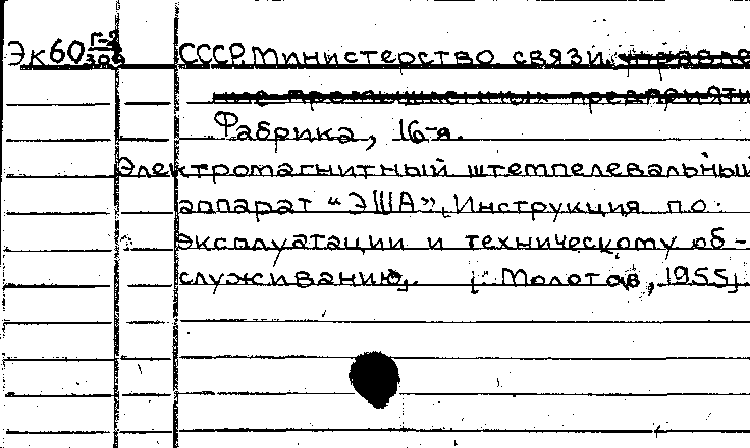 Эк60 Г-9/309 СССР. Министерство связи. управле
ние промышленных предприяти
Фабрика, 16-я.
Электромагнитный штемпелевальный
аппарат "ЭША". Инструкция по
эксплуатации и техническому об-
служиванию. [Молотов, 1955].